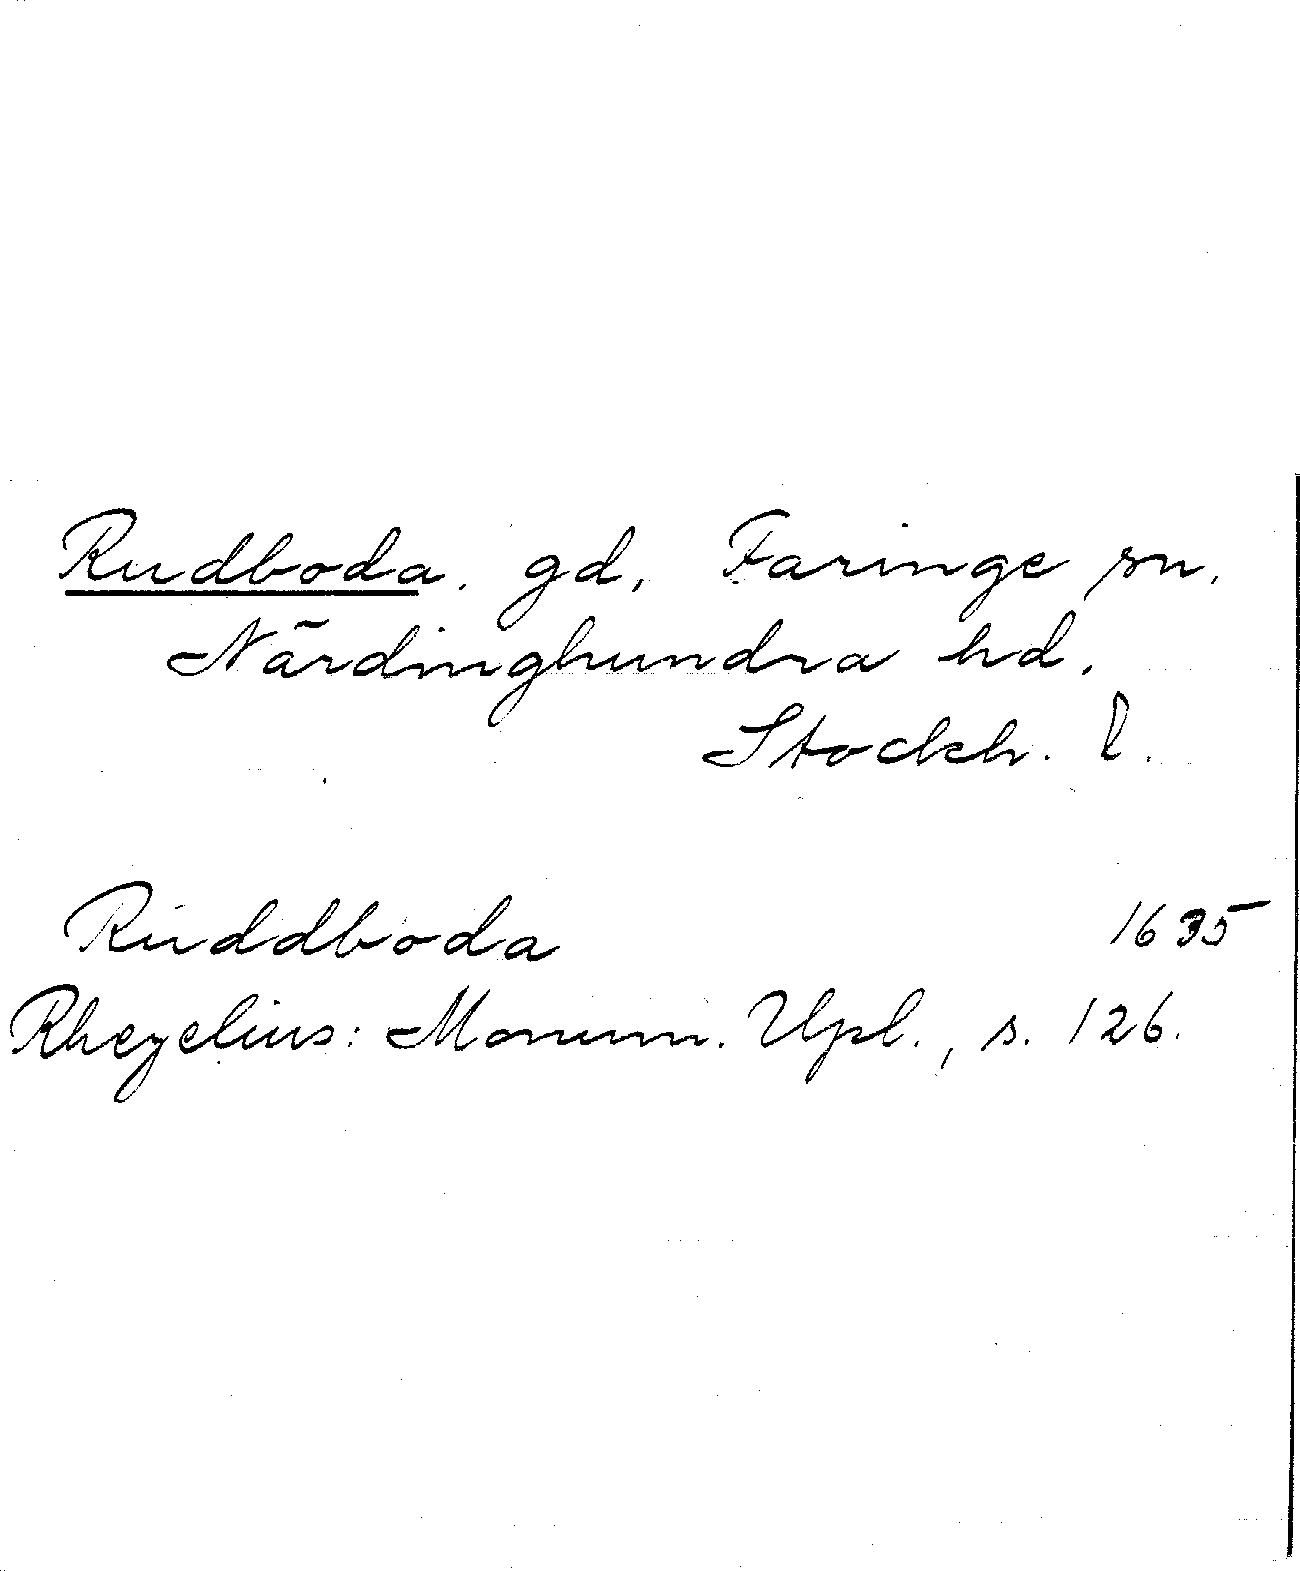 Rudboda. gd, Faringe sn,
Närdinghundra hd,
Stockh. l.
Ruddboda 1635
Rhezelius: Monum. Upl., s. 126.